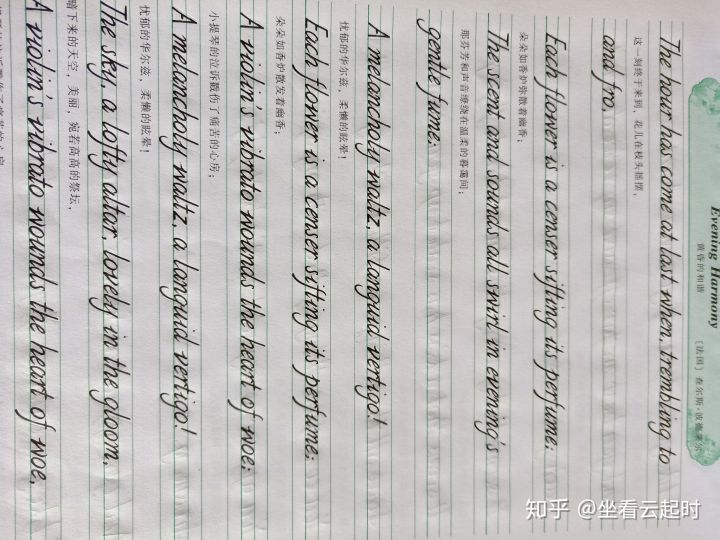 Evening Harmony
黄昏的和谐 〔法国〕查尔斯·波德莱尔
The hour has come at last when, trembling to
这一刻终于来到，花儿在枝头摇摆，
and fro,
Each flower is a censer sifting its perfume;
朵朵如香炉弥散着幽香；
The scent and sounds all swirl in evening's
那芬芳和声音缭绕在温柔的暮霭间；
gentle fume;
A melancholy waltz, a languid vertigo!
忧郁的华尔兹，柔懒的眩晕！
Each flower is a censer sifting its perfume;
朵朵如香炉散发着幽香；
A violin's vibrato wounds the heart of woe;
小提琴的泣诉戳伤了痛苦的心房；
A melancholy waltz, a languid vertigo!
忧郁的华尔兹，柔懒的眩晕！
The sky, a lofty altar, lovely in the gloom,
暗下来的天空，美丽，宛若高高的祭坛，
A violin's vibrato wounds the heart of woe,
知乎 @坐看云起时